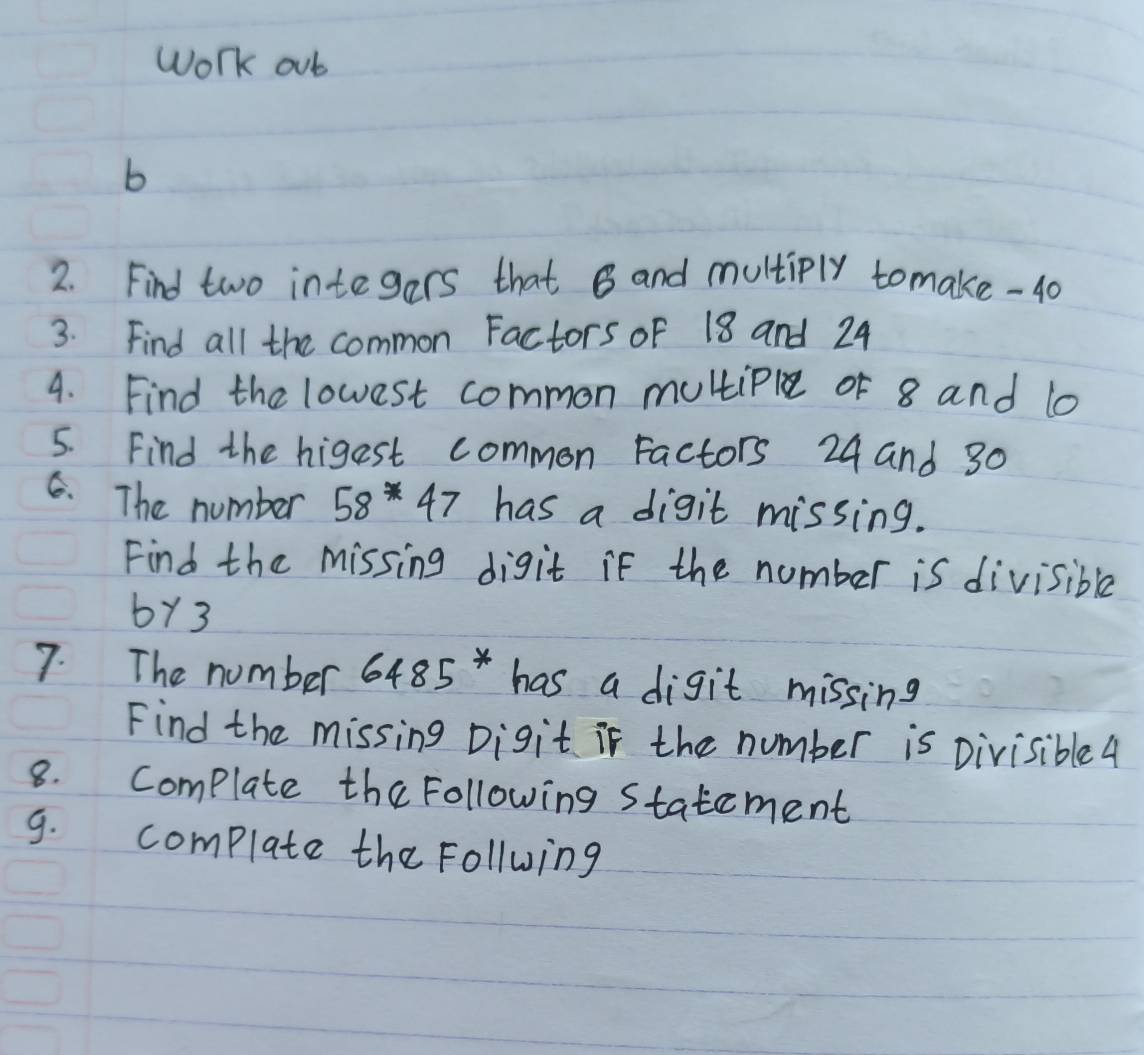 Work out
b
2. Find two integers that 6 and multiply tomake -40
3. Find all the common Factors of 18 and 24
4. Find the lowest common multiple of 8 and 10
5. Find the higest common Factors 24 and 30
6. The number 58*47 has a digit missing.
Find the missing digit if the number is divisible
by 3
7. The number 6485* has a digit missing
Find the missing Digit if the number is Divisible 4
8. Complate the Following statement
9. complate the Follwing